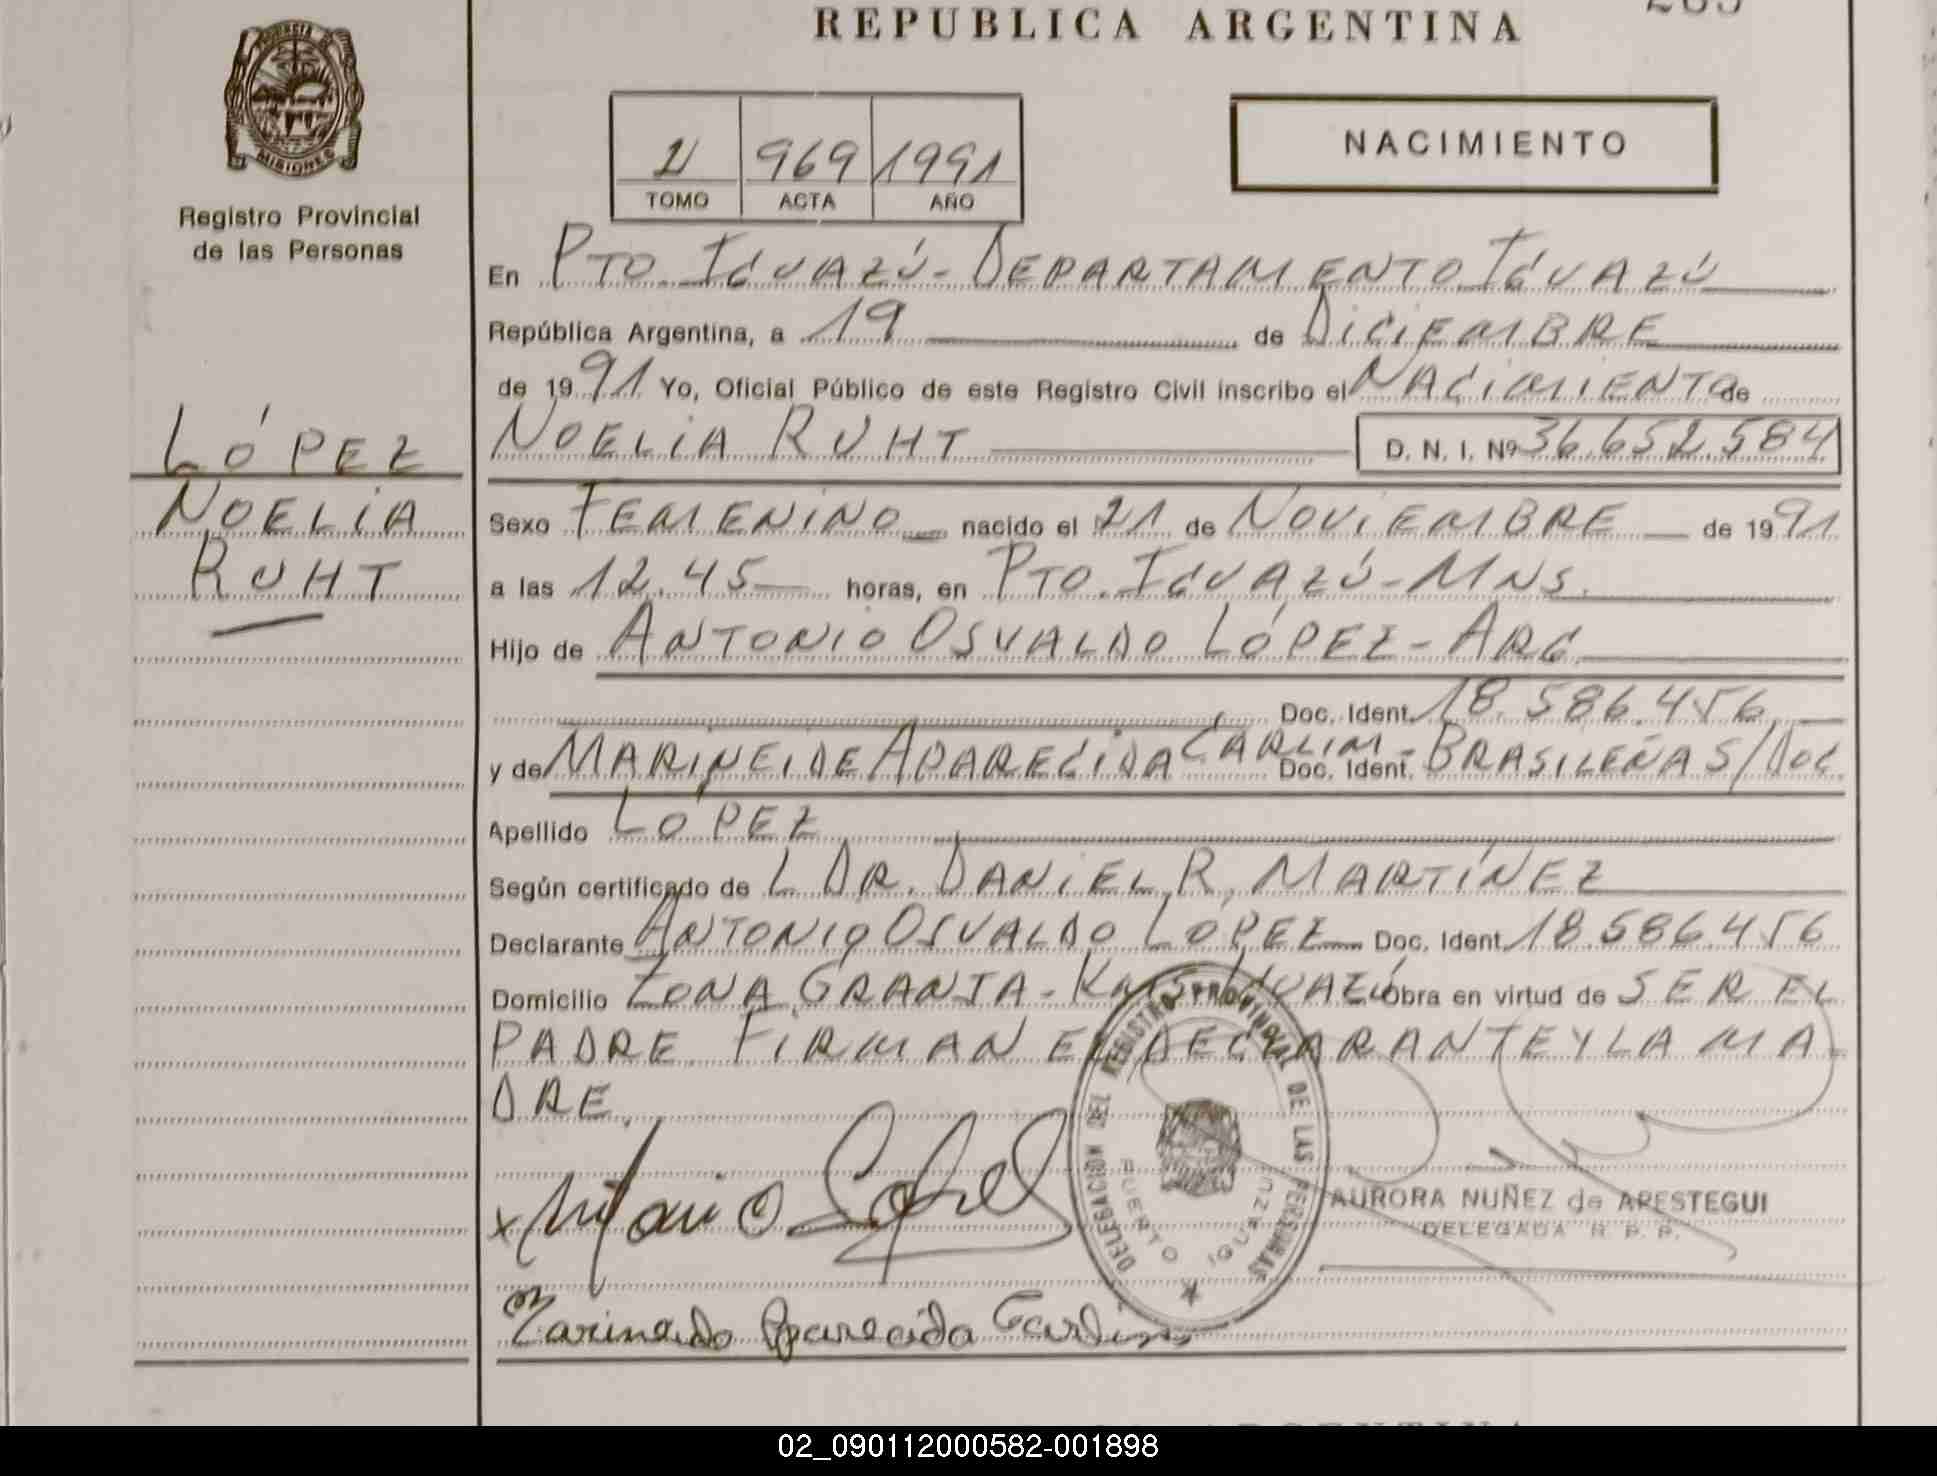 REPUBLICA ARGENTINA
PROVINCIA DE
MISIONES
Registro Provincial
de las Personas
2 969 1991
TOMO ACTA AÑO
NACIMIENTO
En PTO. IGUAZÚ - DEPARTAMENTO IGUAZÚ
República Argentina, a 19 de DICIEMBRE
de 1991 Yo, Oficial Público de este Registro Civil inscribo el NACIMIENTO de
LÓPEZ
NOELIA
RUHT
NOELIA RUHT D. N. I. Nº 36.652.584
Sexo FEMENINO nacido el 21 de NOVIEMBRE de 1991
a las 12.45 horas, en PTO. IGUAZÚ - MNS.
Hijo de ANTONIO OSVALDO LÓPEZ - ARG.
Doc. Ident. 18.586.456
y de MARINEIDE APARECIDA CARLIM - Doc. Ident. BRASILEÑA S/DOC
Apellido LÓPEZ
Según certificado de L DR. DANIEL R. MARTÍNEZ
Declarante ANTONIO OSVALDO LOPEZ Doc. Ident. 18.586.456
Domicilio ZONA GRANJA - IGUAZÚ Obra en virtud de SER EL
PADRE. FIRMAN EL DECLARANTE Y LA MA-
DRE
DELEGACION DEL REGISTRO PROVINCIAL DE LAS PERSONAS
PUERTO IGUAZU
AURORA NUÑEZ de APESTEGUI
DELEGADA R. P. P.
Aparecida Carlim
ARGENTINA
02_090112000582-001898